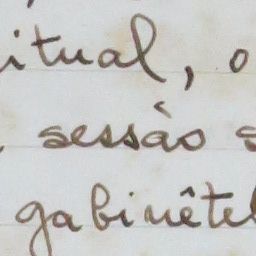 itual, o
, sessão s
gabinête